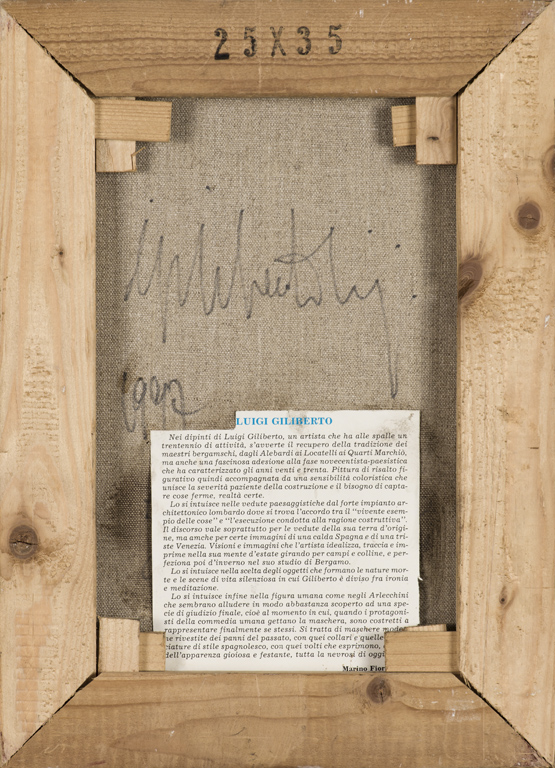 25X35
Giliberto Luigi
1992
LUIGI GILIBERTO
Nei dipinti di Luigi Giliberto, un artista che ha alle spalle un
trentennio di attività, s'avverte il recupero della tradizione dei
maestri bergamschi, dagli Alebardi ai Locatelli ai Quarti Marchiò,
ma anche una fascinosa adesione alla fase novecentista-paesistica
che ha caratterizzato gli anni venti e trenta. Pittura di risalto fi-
gurativo quindi accompagnata da una sensibilità coloristica che
unisce la severità paziente della costruzione e il bisogno di capta-
re cose ferme, realtà certe.
Lo si intuisce nelle vedute paesaggistiche dal forte impianto ar-
chitettonico lombardo dove si trova l'accordo tra il "vivente esem-
pio delle cose" e "l'esecuzione condotta alla ragione costruttiva".
Il discorso vale soprattutto per le vedute della sua terra d'origi-
ne, ma amche per certe immagini di una calda Spagna e di una tri-
ste Venezia. Visioni e immagini che l'artista idealizza, traccia e im-
prime nella sua mente d'estate girando per campi e colline, e per-
feziona poi d'inverno nel suo studio di Bergamo.
Lo si intuisce nella scelta degli oggetti che formano le nature mor-
te e le scene di vita silenziosa in cui Giliberto è diviso fra ironia
e meditazione.
Lo si intuisce infine nella figura umana come negli Arlecchini
che sembrano alludere in modo abbastanza scoperto ad una spe-
cie di giudizio finale, cioè al momento in cui, quando i protagoni-
sti della commedia umana gettano la maschera, sono costretti a
rappresentare finalmente se stessi. Si tratta di maschere moder
te rivestite dei panni del passato, con quei collari e quelle
ciature di stile spagnolesco, con quei volti che esprimono,
dell'apparenza gioiosa e festante, tutta la nevrosi di oggi
Marino Fior